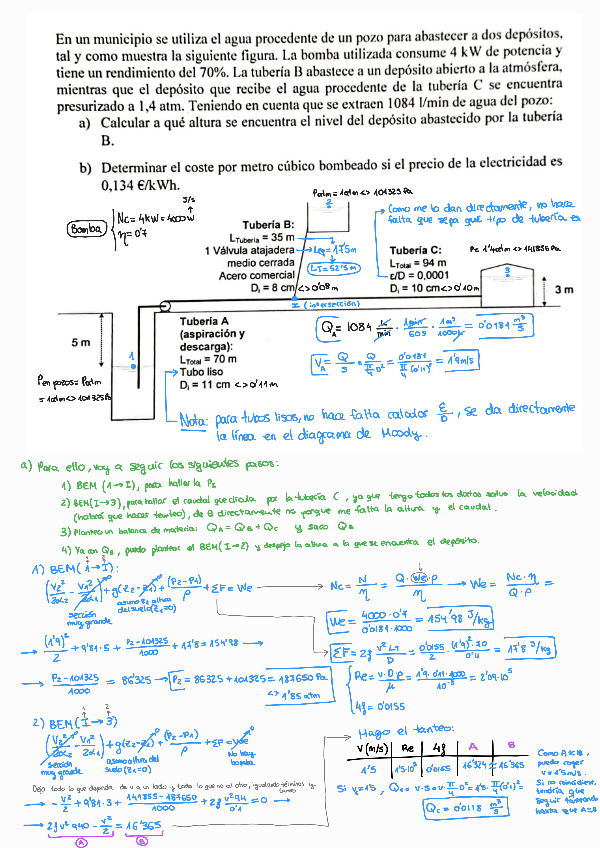 En un municipio se utiliza el agua procedente de un pozo para abastecer a dos depósitos,
tal y como muestra la siguiente figura. La bomba utilizada consume 4 kW de potencia y
tiene un rendimiento del 70%. La tubería B abastece a un depósito abierto a la atmósfera,
mientras que el depósito que recibe el agua procedente de la tubería C se encuentra
presurizado a 1,4 atm. Teniendo en cuenta que se extraen 1084 l/min de agua del pozo:
a) Calcular a qué altura se encuentra el nivel del depósito abastecido por la tubería
B.
b) Determinar el coste por metro cúbico bombeado si el precio de la electricidad es
0,134 €/kWh.
Bomba
J/s
Nc = 4kW = 4000 W
η = 0'7
Patm = 1atm <> 101325 Pa
2
Como me lo dan directamente, no hace
falta que sepa qué tipo de tubería es
Tubería B:
LTubería = 35 m
1 Válvula atajadera
medio cerrada
Acero comercial
Di = 8 cm <> 0'08m
Leq = 17'5m
LT = 52'5 m
Tubería C:
LTotal = 94 m
ε/D = 0,0001
Di = 10 cm <> 0'10m
Pc 1'4atm <> 141855 Pa
3
3 m
I (intersección)
5 m
1
Pen pozos = Patm
= 1atm <> 101325Pa
Tubería A
(aspiración y
descarga):
LTotal = 70 m
Tubo liso
Di = 11 cm <> 0'11m
QA = 1084 l/min · 1min/60s · 1m³/1000l = 0'0181 m³/s
VA = Q/S = Q/(π/4 D²) = 0'0181/(π/4 (0'11)²) = 1'9m/s
Nota: para tubos lisos, no hace falta calcular ε/D, se da directamente
la línea en el diagrama de Moody.
a) Para ello, voy a seguir los siguientes pasos:
1) BEM (1→I), para hallar la PI
2) BEM(I→3), para hallar el caudal que circula por la tubería C, ya que tengo todos los datos salvo la velocidad
(habrá que hacer tanteo), de B directamente no porque me falta la altura y el caudal.
3) Planteo un balance de materia: QA = QB + QC y saco QB
4) Ya con QB, puedo plantear el BEM(I→2) y despejo la altura a la que se encuentra el depósito.
1) BEM(1→I):
(V2²/2α2 − V1²/2α1) + g(Z2−Z1) + (P2−P1)/ρ + ΣF = We
sección
muy grande
asumo z1 altura
del suelo (z1=0)
Nc = N/η = Q·We·ρ/η → We = Nc·η/Q·ρ =
We = 4000·0'7/0'0181·1000 = 154'98 J/kg
→ (1'9)²/2 + 9'81·5 + P2−101325/1000 + 17'8 = 154'98 →
ΣF = 2f V² LT/D = 0'0155/2 (1'9)²·70/0'11 = 17'8 J/kg
→ P2−101325/1000 = 86'325 → P2 = 86325 + 101325 = 187650 Pa
<> 1'85 atm
Re = V·D·ρ/μ = 1'9·0'11·1000/10⁻³ = 2'09·10⁵
4f = 0'0155
2) BEM(I→3)
(V2²/2α2 − V1²/2α1) + g(Z2−Z1) + (P2−P1)/ρ + ΣF = We
sección
muy grande
asumo altura del
suelo (z1=0)
No hay
bomba
Dejo todo lo que dependa de v a un lado y todo lo que no al otro, igualando términos y tanteo
→ −V²/2 + 9'81·3 + 141855−187650/1000 + 2f V²94/0'1 = 0 →
→ 2f V² 940 − V²/2 = 16'365
A B
Hago el tanteo:
V (m/s) Re 4f A B
1'5 1'5·10⁵ 0'0165 16'324 ≈ 16'365
Como A≈B,
puedo coger
v = 1'5m/s.
Si no coincidiese,
tendría que
seguir tanteando
hasta que A≈B
Si v=1'5, Qc = v·S = v·π/4 D² = 1'5·π/4 (0'1)² =
QC = 0'0118 m³/s